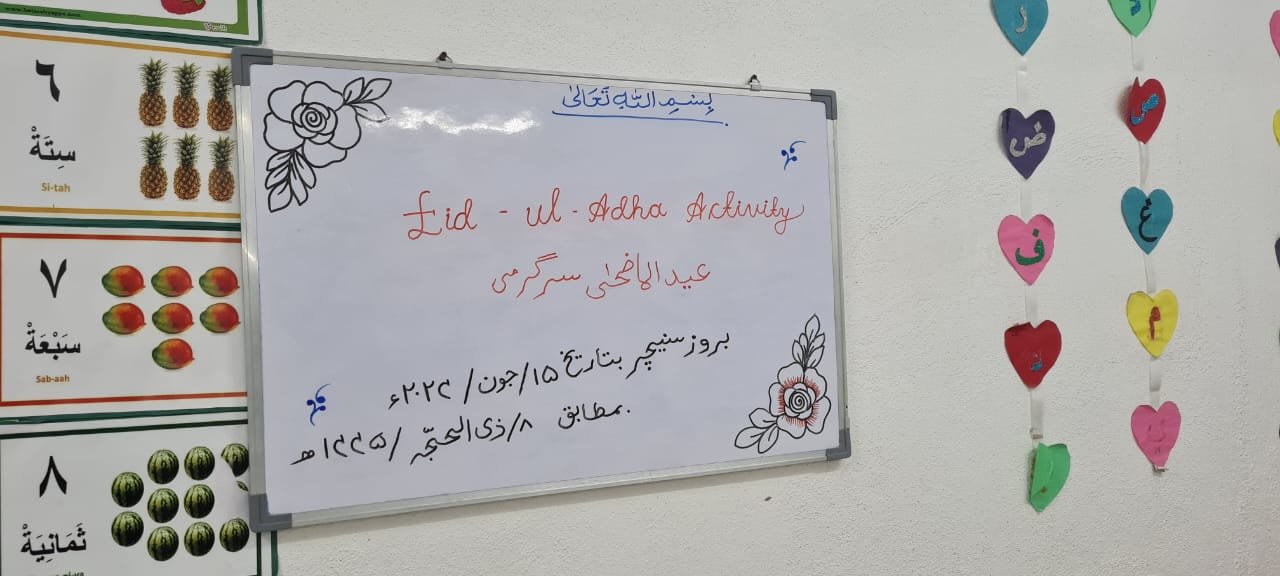 www.belarabyapps.com
٦
سِتَةْ
Si-tah
٧
سَبْعَةْ
Sab-aah
٨
ثَمَانِيَةْ
بِسْمِ اللهِ تَعَالیٰ
Eid - ul - Adha Activity
عید الاضحیٰ سرگرمی
بروز سنیچر بتاریخ ۱۵/جون/ ۲۰۲۴ء
بمطابق ۸/ذی الحجّہ /۱۴۴۵ھ
ض
ف
ص
غ
م